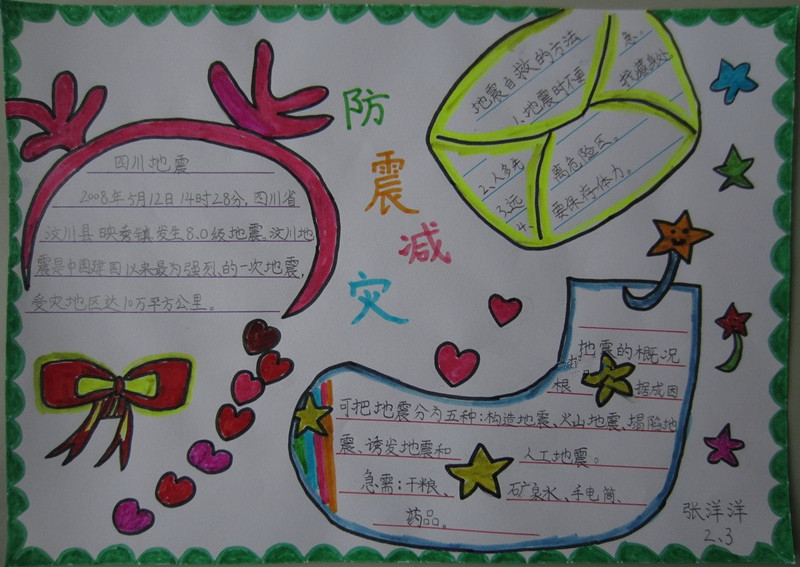 防
震
减
灾
四川地震
2008年5月12日14时28分,四川省
汶川县映秀镇发生8.0级地震。汶川地
震是中国建国以来最为强烈、的一次地震,
受灾地区达10万平方公里。
地震自救的方法
1、地震时不要
急。
2、人多先
择藏身处
3、远
离危险区。
4、
要保存体力。
地震的概况
根 据成因
可把地震分为五种:构造地震、火山地震、塌陷地
震、诱发地震和 人工地震。
急需:干粮、 矿泉水、手电筒、
药品。
张洋洋
2、3